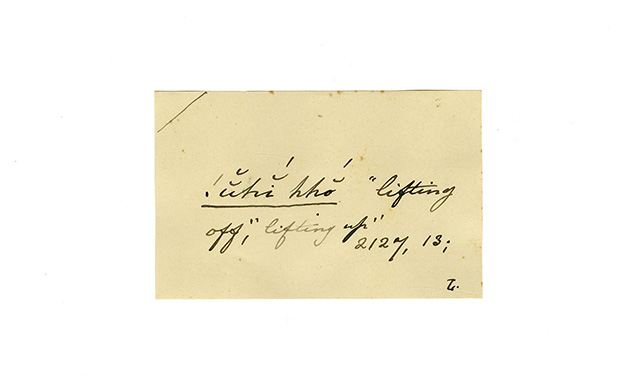 !ŭhĭ́ hhŏ́ "lifting
off", "lifting up"
2127, 13;